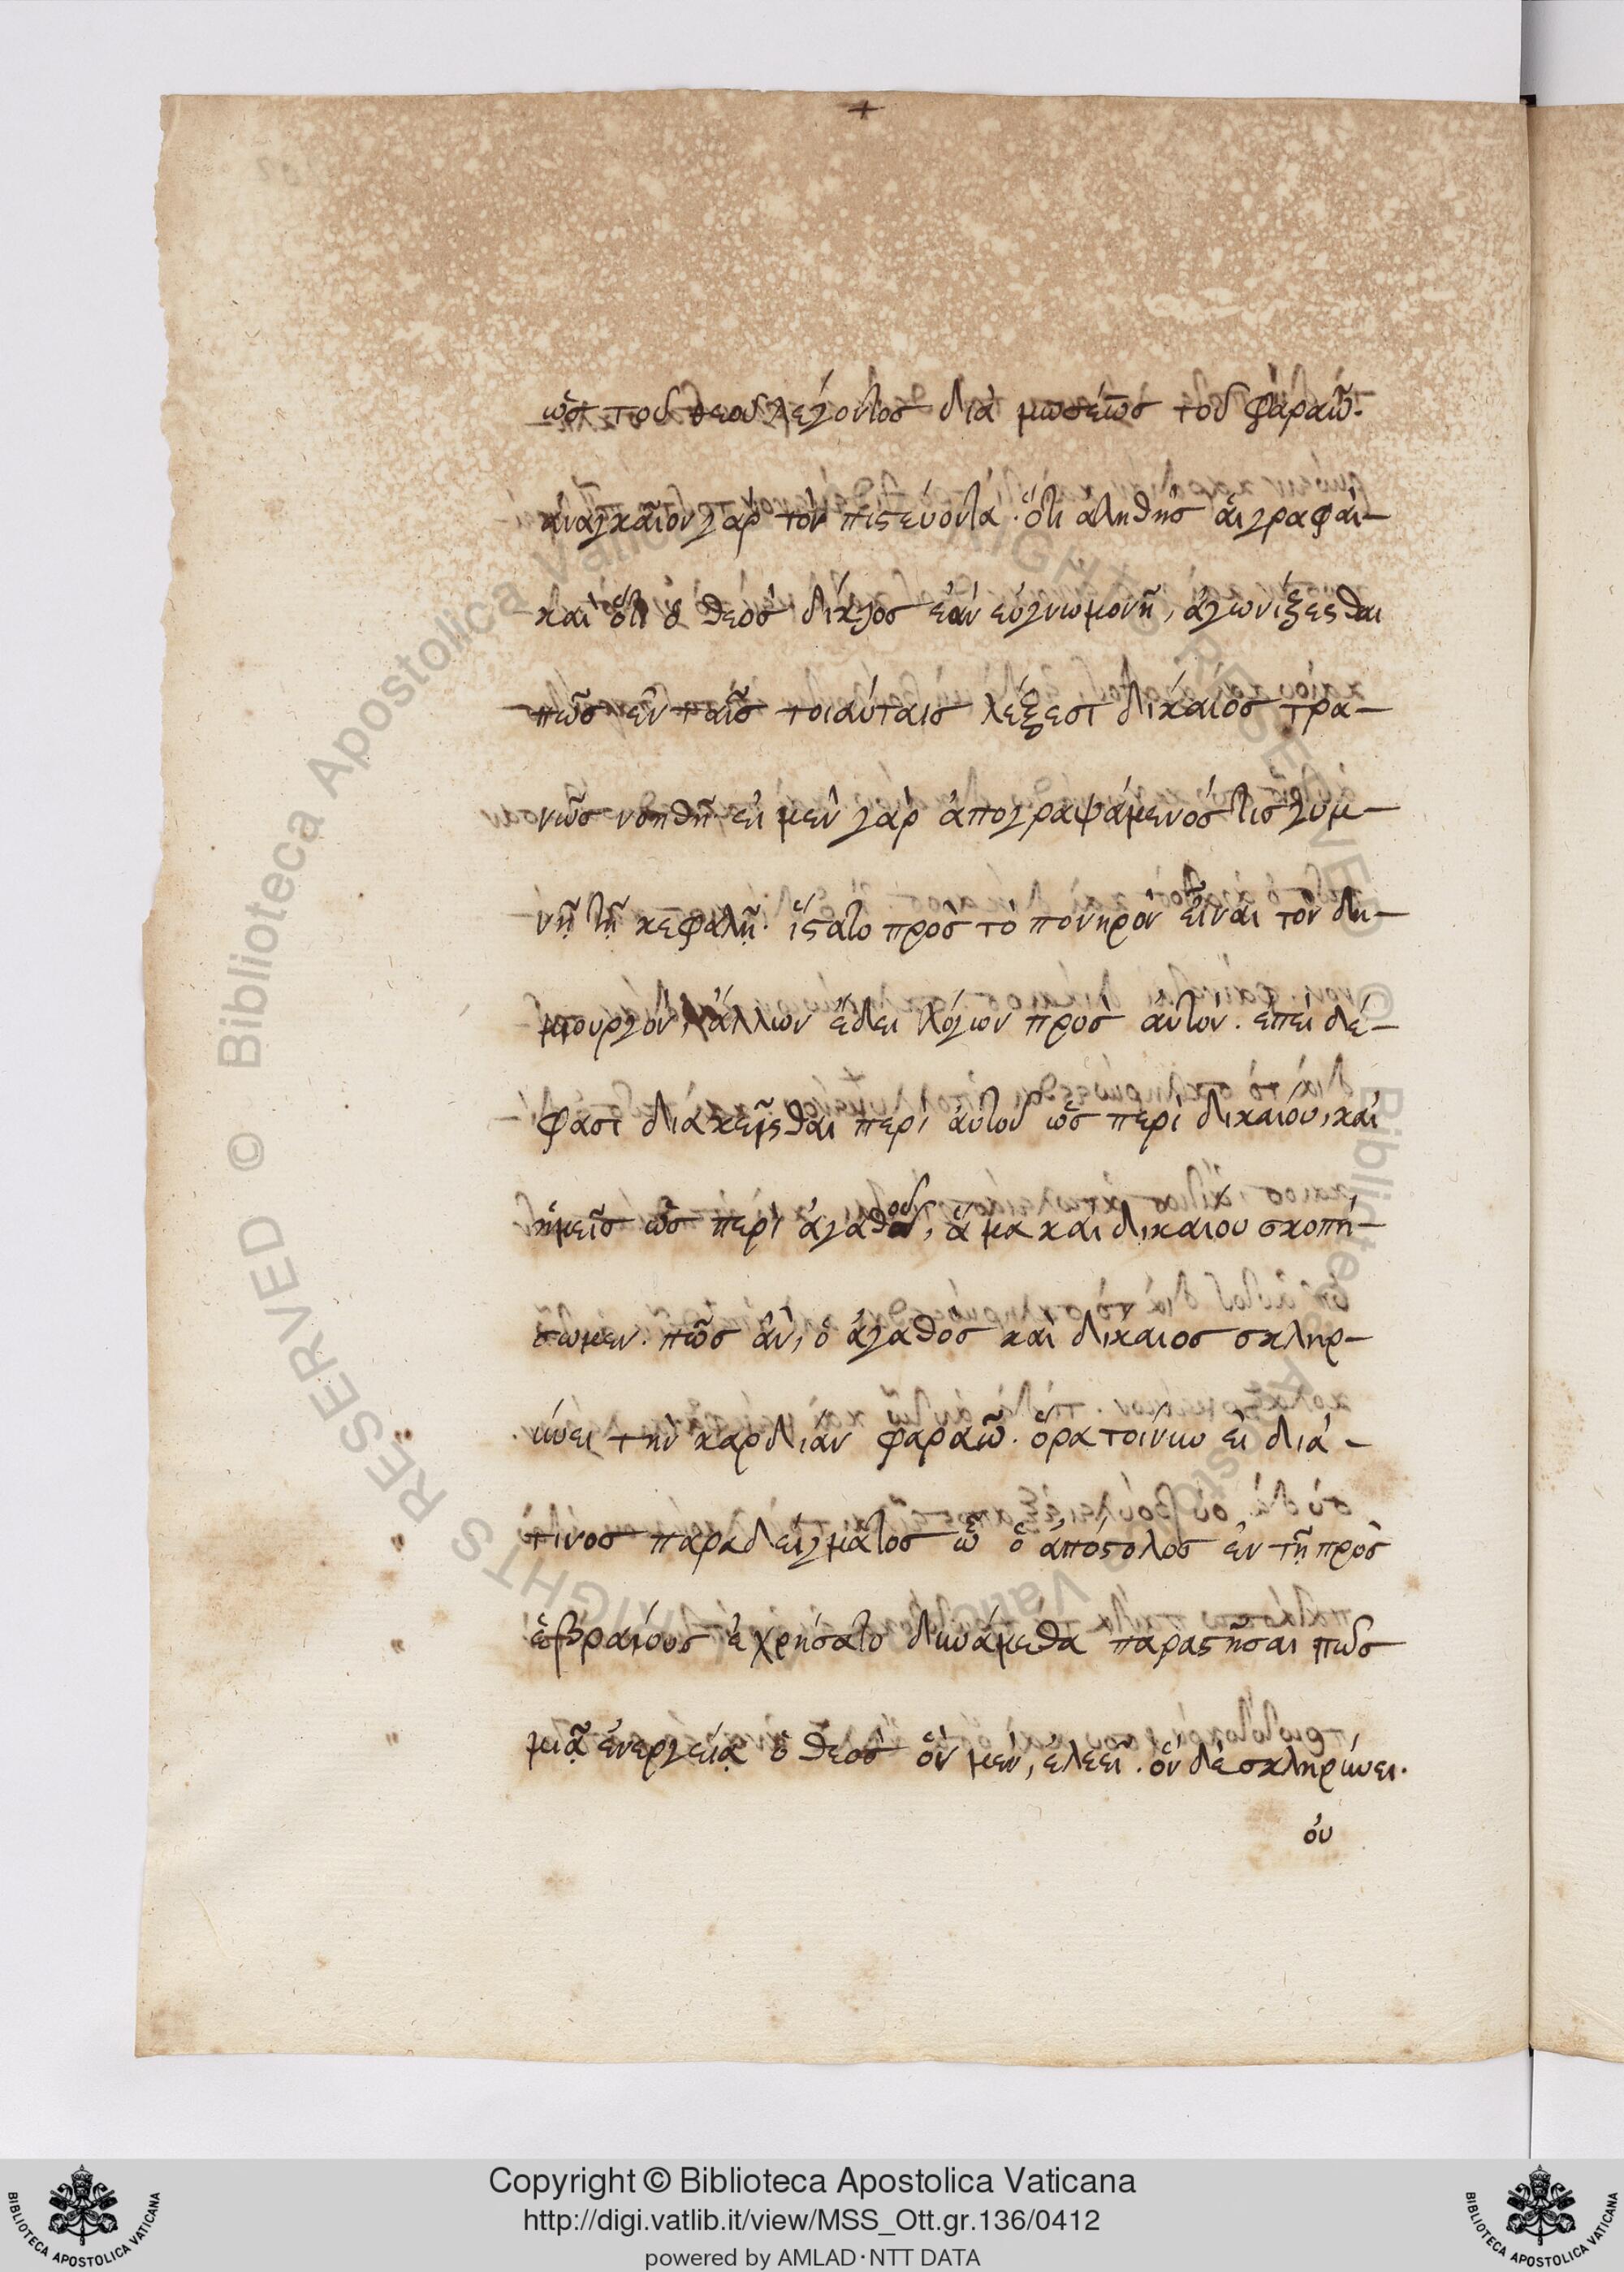 +
ὡς τοῦ θεοῦ λέγοντος διὰ μωσέως τοῦ φαραὼ.
ἀναγκαῖον γὰρ τὸν πιστεύοντα. ὅτι αληθης αἱ γραφαὶ-
και ὅτι ὁ θεὸς δίκαιος ἐὰν εὐγνωμονῆ, ἀγωνίζεσθαι
πῶς ἐν ταῖς τοιαύταις λέξεσι δίκαιος τρα-
νῶς νοηθῆ. εἰ μεν γὰρ ἀπογραψάμενός τις γυμ-
νῇ τῇ κεφαλῇ. ἵστατο πρὸς τὸ πονηρὸν εἶναι τὸν δη-
μιουργὸν, ἄλλων ἔδει λόγων πρὸς αὐτὸν. ἐπεὶ δέ-
φασι διακεῖσθαι περὶ αὐτοῦ ὡς περὶ δικαιόυ, καὶ
ἡμεῖς ὡς περὶ ἀγαθοῦ, ἅμα καὶ δικαιου σκοπή-
σωμεν. πῶς ἂν, ὁ ἀγαθος καὶ δίκαιος σκληρ-
ύνει τὴν καρδίαν φαραὼ. ὅρα τοίνυν εἰ διά-
τινος παραδείγματος ὧ ὁ ἀπόστολος ἐν τῇ πρὸς
ἑβραίους ἐχρήσατο δυνάμεθα παραστῆσαι πῶς
μιᾷ ἐνεργείᾳ ὁ θεὸς ὃν μὲν, ἐλεεῖ. ὃν δὲ σκληρύνει.
ὀυ
© Biblioteca Apostolica Vaticana
RIGHTS RESERVED
Copyright © Biblioteca Apostolica Vaticana
http://digi.vatlib.it/view/MSS_Ott.gr.136/0412
powered by AMLAD·NTT DATA
BIBLIOTECA APOSTOLICA VATICANA
BIBLIOTECA APOSTOLICA VATICANA